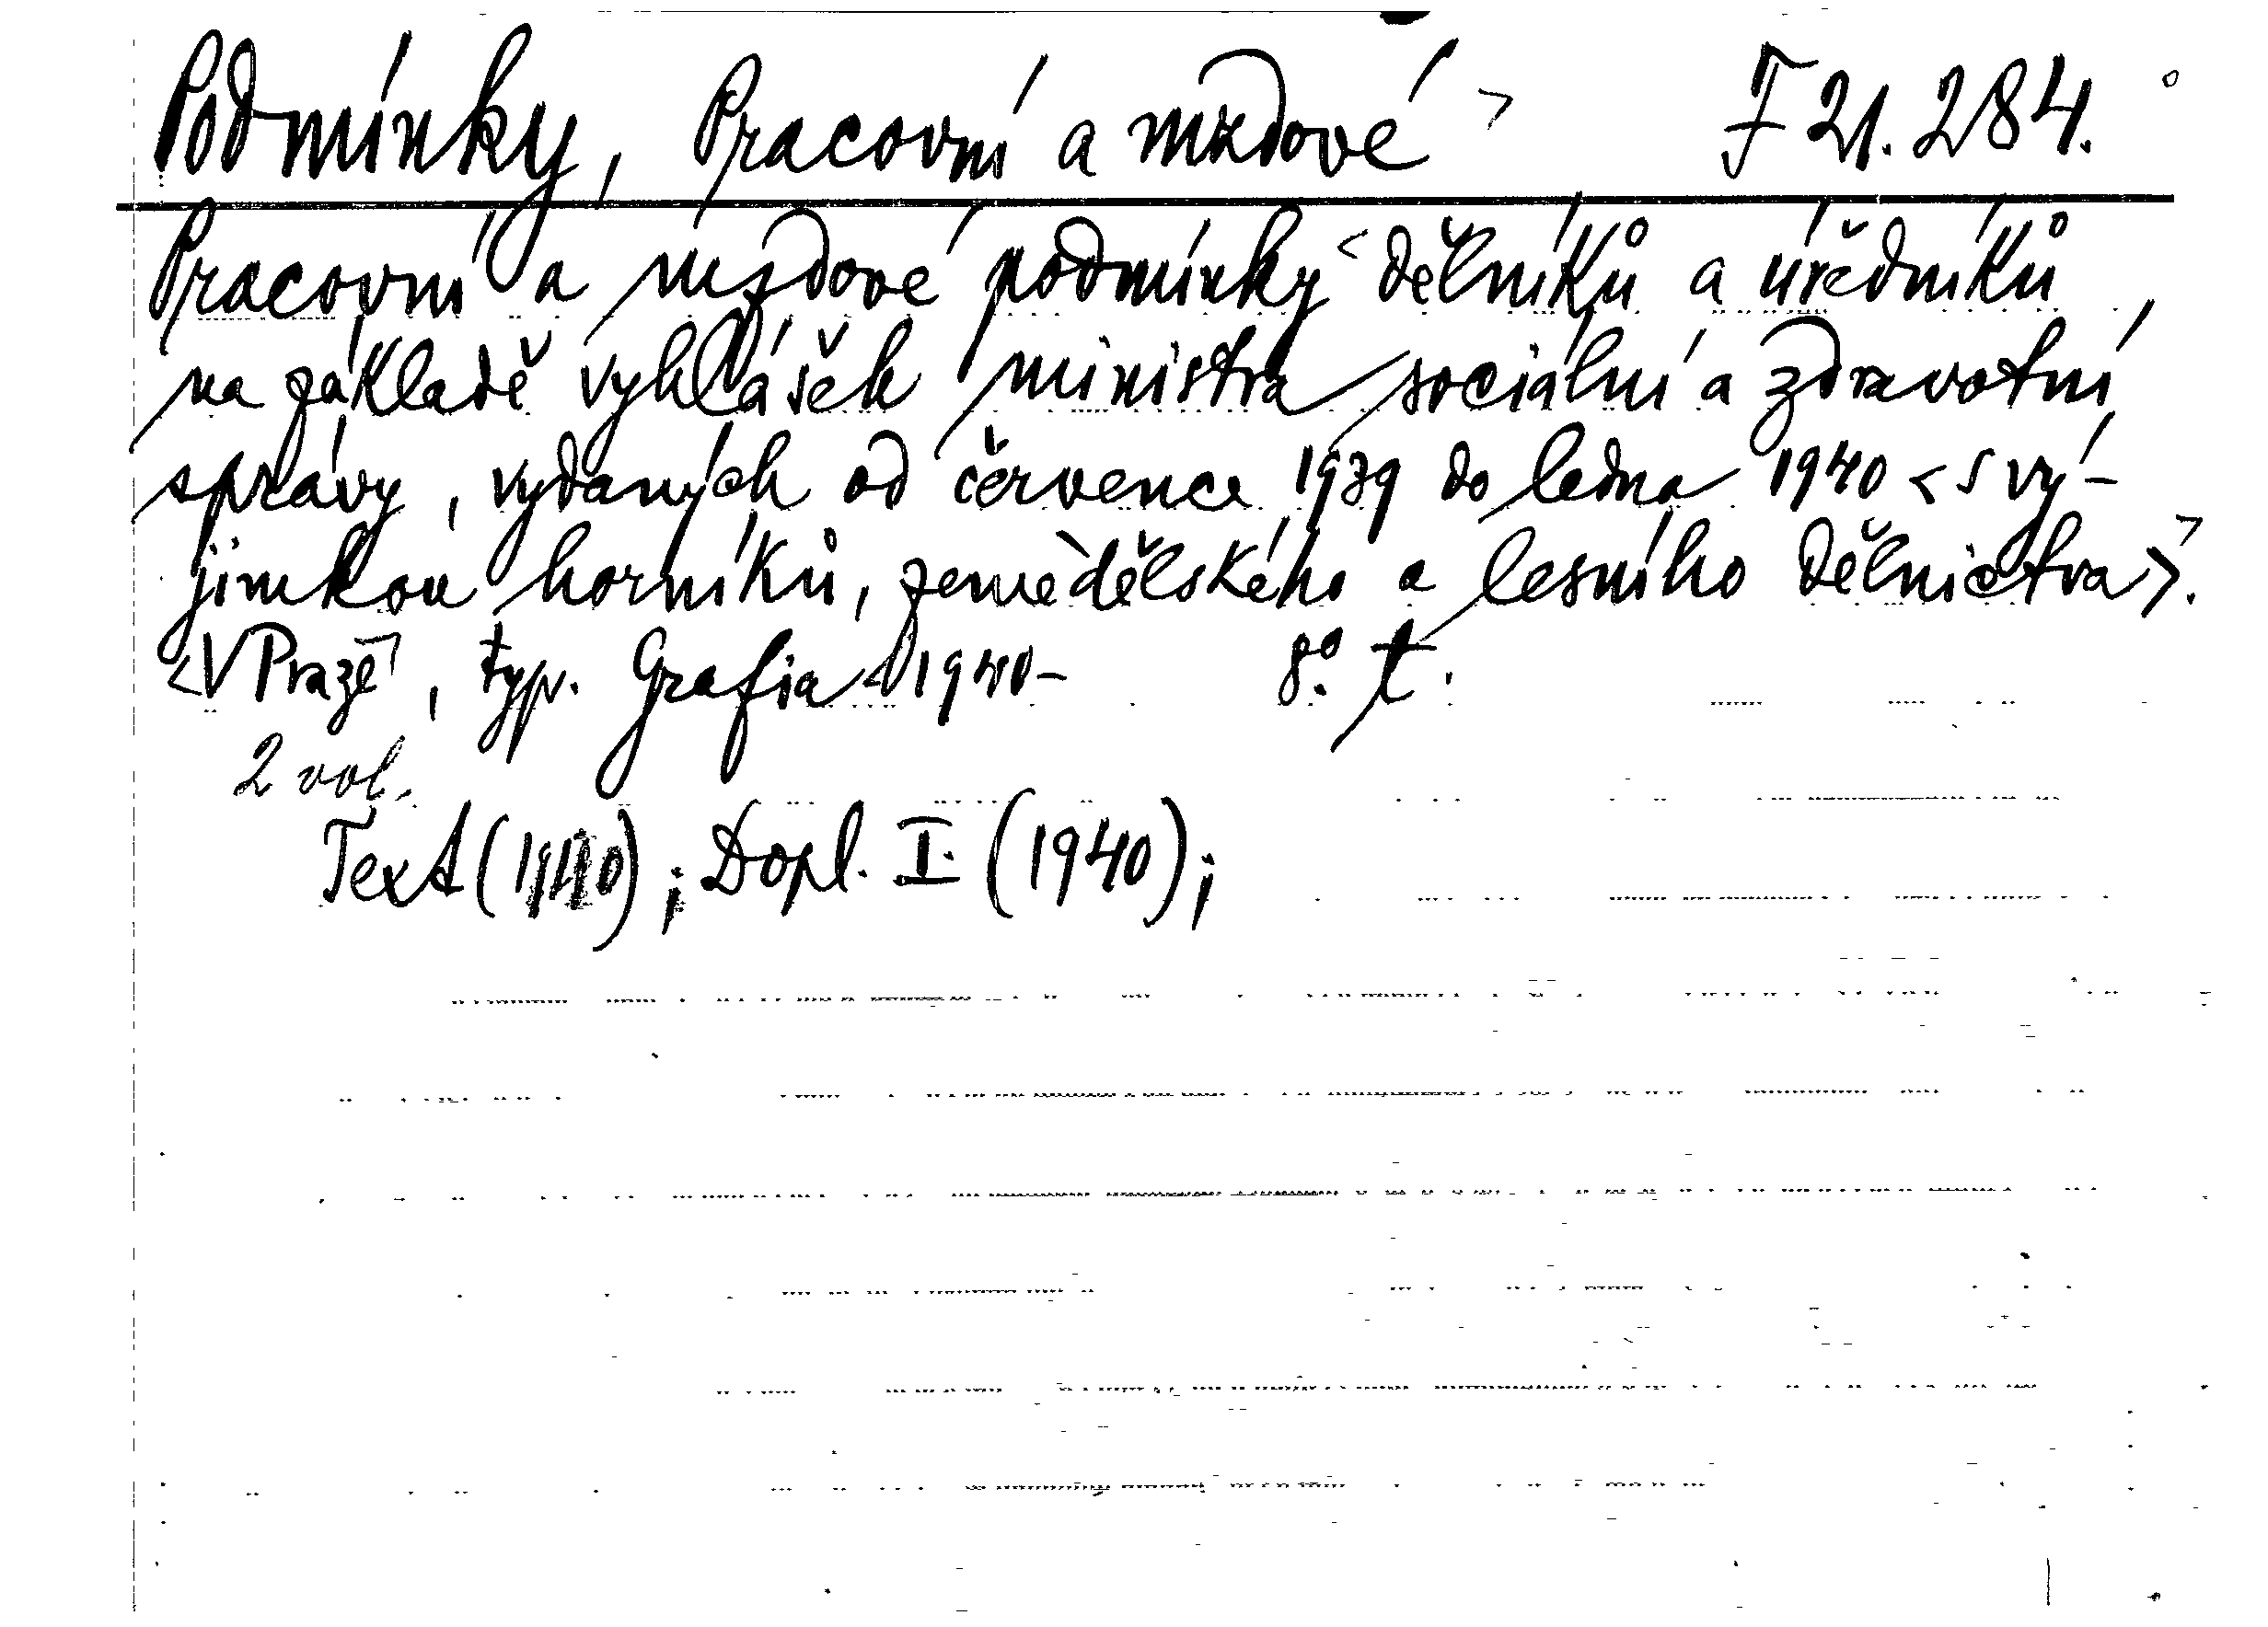 Podmínky, Pracovní a mzdové > F 21.284.
Pracovní a mzdové podmínky < dělníků a úředníků
na základě vyhlášek ministra sociální a zdravotní
správy, vydaných od července 1939 do ledna 1940 < s vý-
jimkou horníků, zemědělského a lesního dělnictva >.
<V Praze>, typ. Grafia 1940- 8°. t.
2 vol.
Text (1940); Dopl. I. (1940);